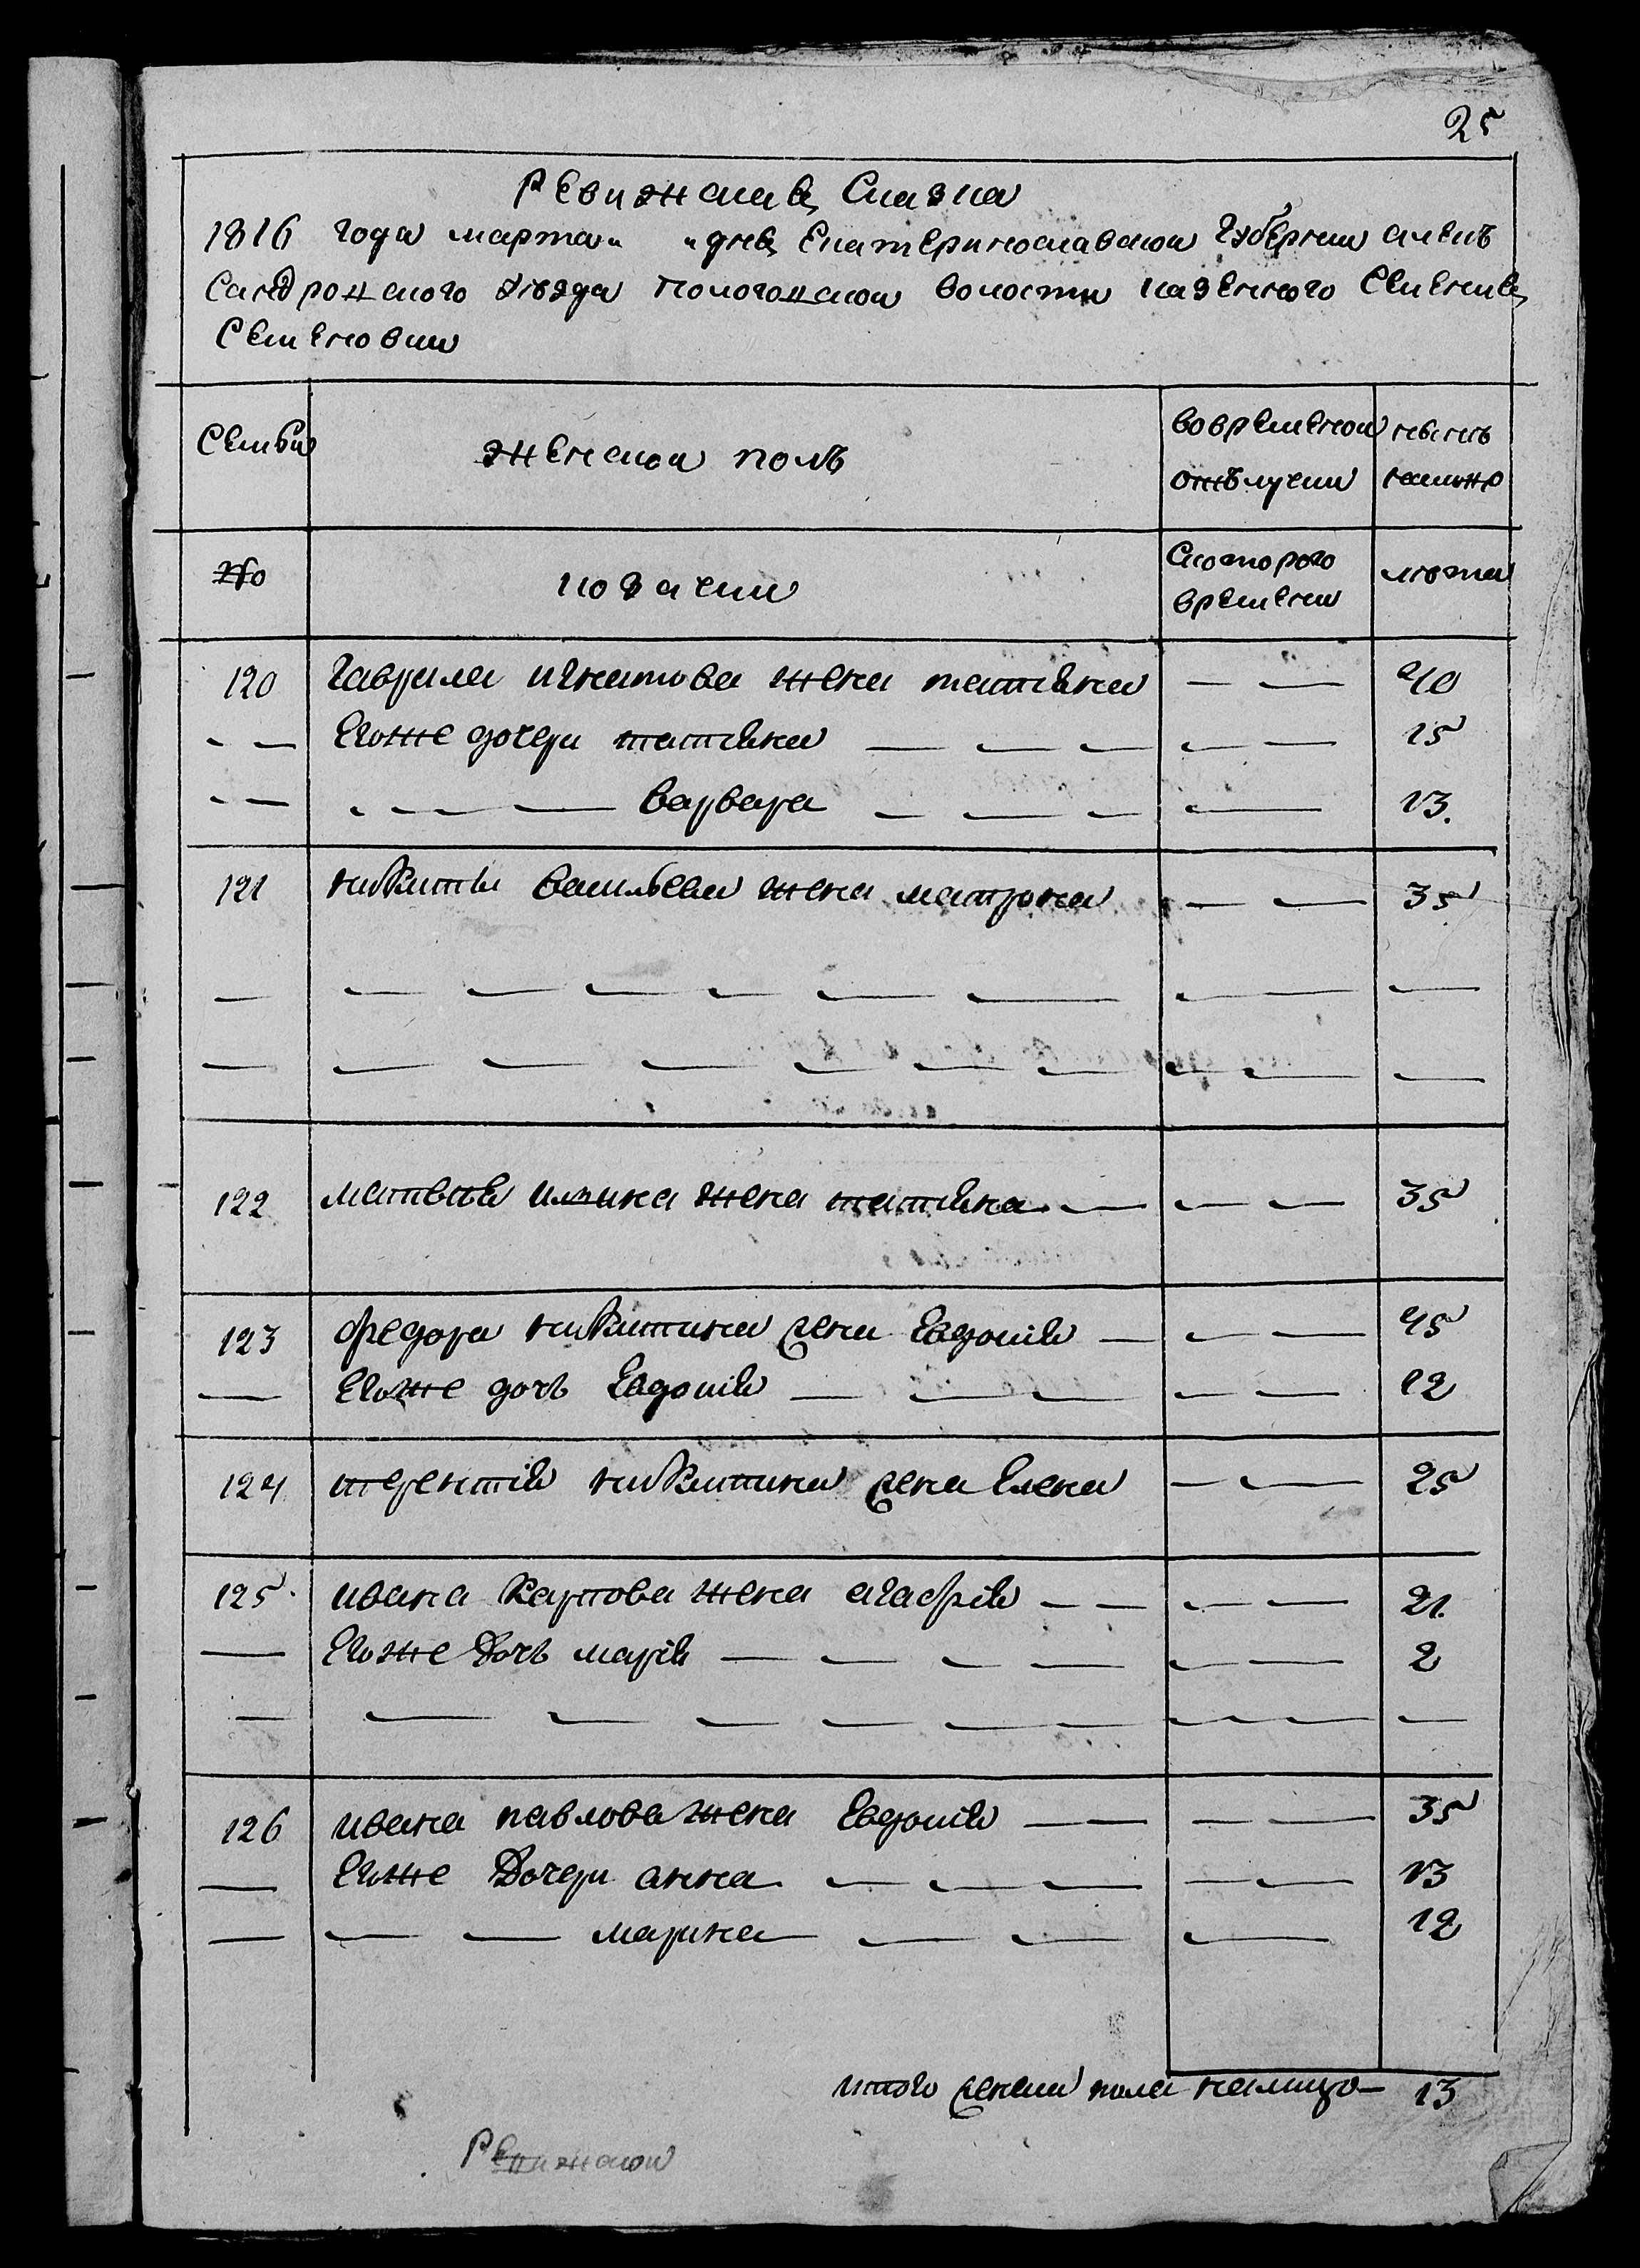 25
Ревижская Сказка
1816 года марта „ „ дня Екатеринославской Губернии алекъ
сандровского уезда пологовской волости казенного Селения
Семеновки
Семьи
женской полъ
во временой
отълучки
ныне
налицо
№
показании
Скоторого
времени
лета
120 Гаврила игнатова жена татяна — — 40
— — Егоже дочери татяна — — — — — 15
— — — — — — Варвара — — — — 13.
121 никиты васильева жена матрона — — 35
— — — — — — — — —
— — — — — — — — — —
122 матвея илина жена татяна — — — 35
123 федора никитина жена Евдокия — — — 45
— Егоже дочь Евдокия — — — — — 12
124 терентия никитина жена Елена — — 25
125 ивана Карпова жена агафия — — — — 21.
— Егоже Дочь мария — — — — — — 2
— — — — — — — — — — —
126 ивана павлова жена Евдокия — — — — 35
— Егоже Дочери анна — — — — — 13
— — — марина — — — 12
итого женска пола налицо — 13
Ревижской